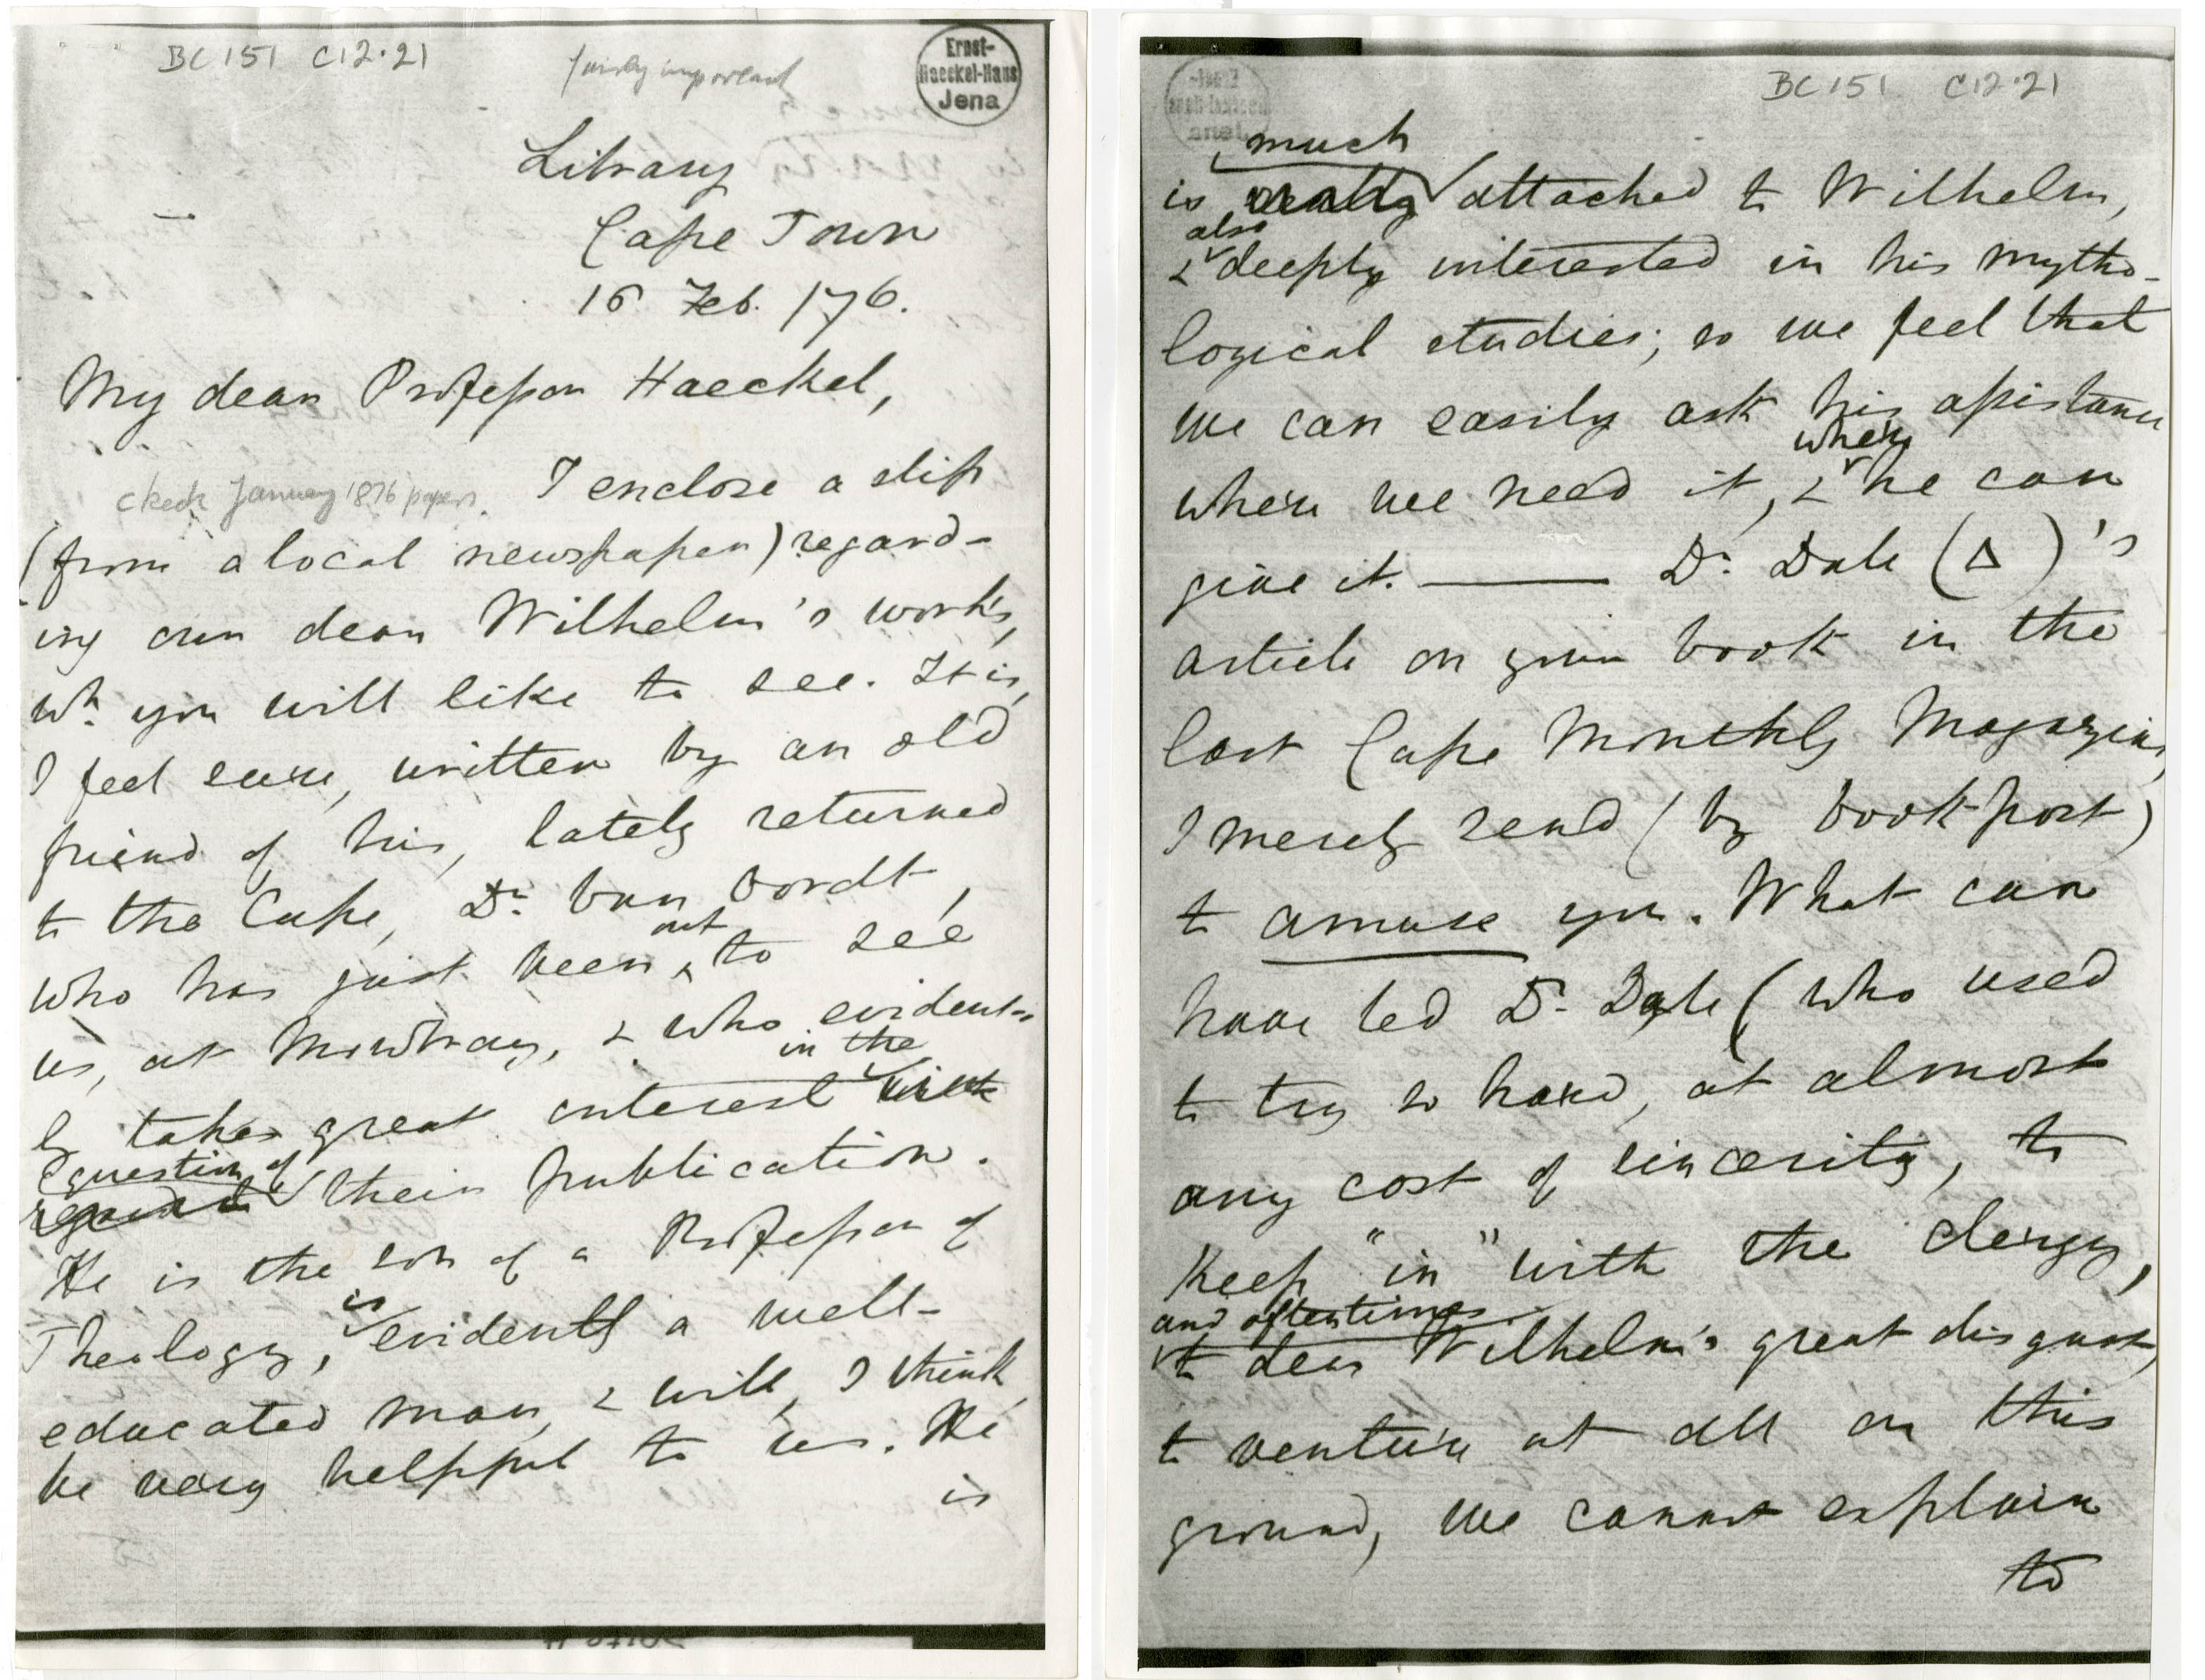 BC 151 C12.21
fairly important
Ernst-
Haeckel-Haus
Jena
Library
Cape Town
16 Feb. /76.
My dear Professor Haeckel,
check January 1876 papers.
I enclose a slip
(from a local newspaper) regard-
ing our dear Wilhelm's works,
wh. you will like to see. It is,
I feel sure, written by an old
friend of his, lately returned
to the Cape, Dr. Van Oordt,
who has just been out to see
us, at Mowbray, & who evident-
ly takes great interest in the with
question of regard to their publication.
He is the son of a Professor of
Theology, is evidently a well-
educated man, & will, I think,
be very helpful to us. He
is
BC 151 C12.21
Ernst-
Haeckel-Haus
Jena
is much attached to Wilhelm,
& also deeply interested in his mytho-
logical studies; so we feel that
we can easily ask his assistance
where we need it, & when he can
give it. — Dr. Dale (Δ)'s
article on your book in the
last Cape Monthly Magazine,
I merely send (by book post)
to amuse you. What can
have led Dr. Dale (who used
to try so hard, at almost
any cost of sincerity, to
keep "in" with the clergy,
and oftentimes
to dear Wilhelm's great disgust)
to venture at all on this
ground, we cannot explain
to